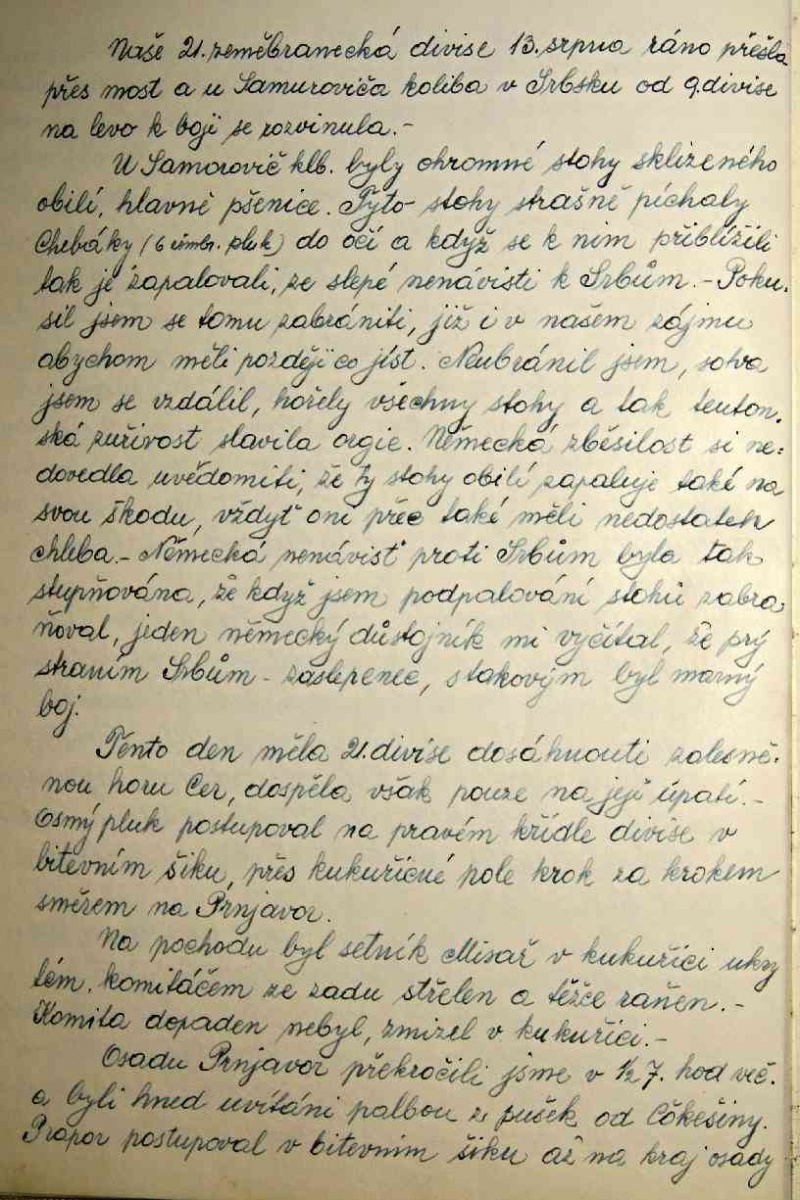 Naše 21. zeměbranecká divise 13. srpna ráno přešla
přes most a u Samuroviča koliba v Srbsku od 9. divise
na levo k boji se rozvinula.-
U Samorovič klb. byly ohromné stohy sklizeného
obilí, hlavně pšenice. Tyto stohy strašně píchaly
Chebáky (6 zěmbr. pluk) do očí a když se k nim přiblížili
tak je zapalovali, ze slepé nenávisti k Srbům. - Poku-
sil jsem se tomu zabrániti, již i v našem zájmu
abychom měli později co jíst. Neubránil jsem, sotva
jsem se vzdálil, hořely všechny stohy a tak teuton-
ská zuřivost slavila orgie. Německá zběsilost si ne-
dovedla uvědomiti, že ty stohy obilí zapaluje také na
svou škodu, vždyť oni přec také měli nedostatek
chleba.- Německá nenávisť proti Srbům byla tak
stupňována, že když jsem podpalování stohů zabra-
ňoval, jeden německý důstojník mi vyčítal, že prý
straním Srbům - zaslepenec, s takovým byl marný
boj.
Tento den měla 21. divise dosáhnouti zalesně-
nou horu Cer, dospěla však pouze na její úpatí.-
Osmý pluk postupoval na pravém křídle divise v
bitevním šiku, přes kukuřicné pole krok za krokem
směrem na Prnjavor.
Na pochodu byl setník Misař v kukuřici ukry
tém. komitáčem ze zadu střelen a těžce raněn.-
Komita dopaden nebyl, zmizel v kukuřici.-
Osadu Prnjavor překročili jsme v ½ 7. hod več.
a byli hned uvítáni palbou z pušek od Cõkešiny.
Prapor postupoval v bitevním šiku až na kraj osady